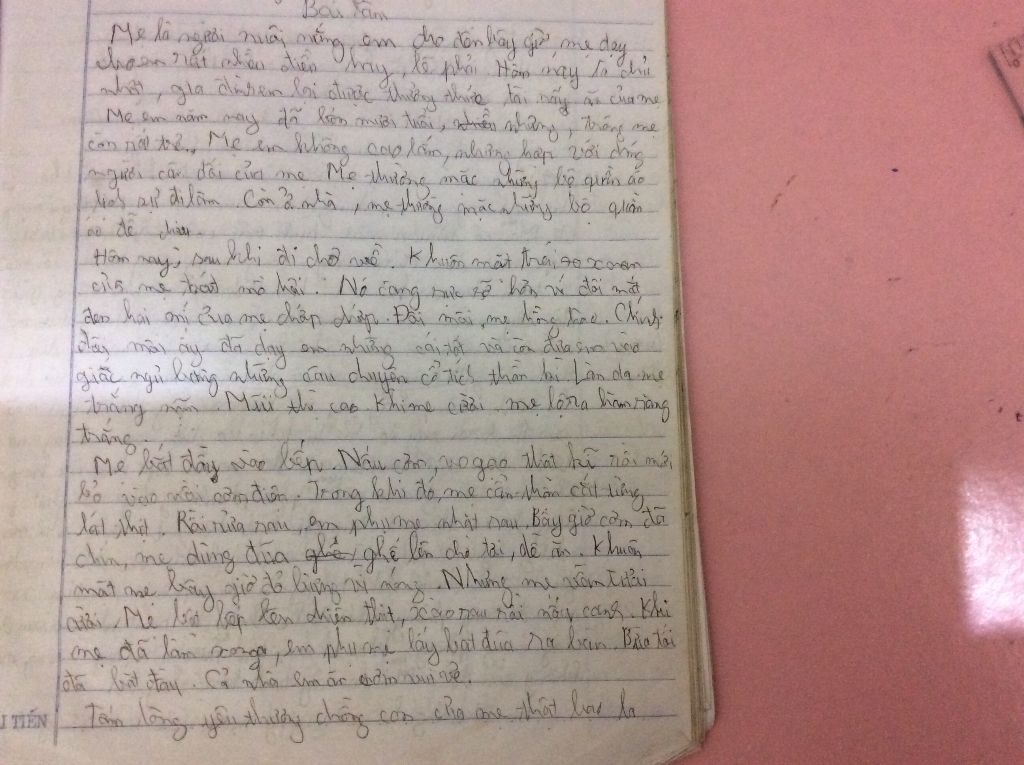 Bài làm
Mẹ là người nuôi nấng em cho đến bây giờ, mẹ dạy
cho em rất nhiều điều hay, lẽ phải. Hôm nay là chủ
nhật, gia đình em lại được thưởng thức tài nấy ăn của mẹ
Mẹ em năm nay đã bốn mươi tuổi, nhưng, trông mẹ
còn rất trẻ. Mẹ em không cao lắm, nhưng hợp với dáng
người cân đối của mẹ. Mẹ thường mặc những bộ quần áo
lịch sự đi làm. Còn ở nhà, mẹ thường mặc những bộ quần
áo dễ chịu.
Hôm nay, sau khi đi chợ về. Khuôn mặt trái xoan
của mẹ toát mồ hôi. Nó càng rực rỡ hơn vì đôi mắt
đen hai mí của mẹ chớp chớp. Đôi môi, mẹ hồng hào. Chính
đôi môi ấy đã dạy em những cái tốt và còn đưa em vào
giấc ngủ bằng những câu chuyện cổ tích thần kì. Làn da mẹ
trắng mịn. Mũi thì cao. Khi mẹ cười, mẹ lộ ra hàm răng
trắng.
Mẹ bắt đầy vào bếp. Nấu cơm, vo gạo thật kĩ rồi mới
bỏ vào nồi cơm điện. Trong khi đó, mẹ cẩn thận cắt từng
lát thịt. Rồi rửa rau, em phụ mẹ nhặt rau. Bây giờ cơm đã
chín, mẹ dùng đũa ghế lên cho tơi, dễ ăn. Khuôn
mặt mẹ bây giờ đỏ bừng vì nóng. Nhưng mẹ vẫn
cười. Mẹ bắc bếp lên chiên thịt, xào rau rồi nấy canh. Khi
mẹ đã làm xong, em phụ mẹ lấy bát đũa ra bàn. Bữa tối
đã bắt đầy. Cả nhà em ăn cơm vui vẻ.
Tấm lòng yêu thương chồng con của mẹ thật bao la
TIẾN